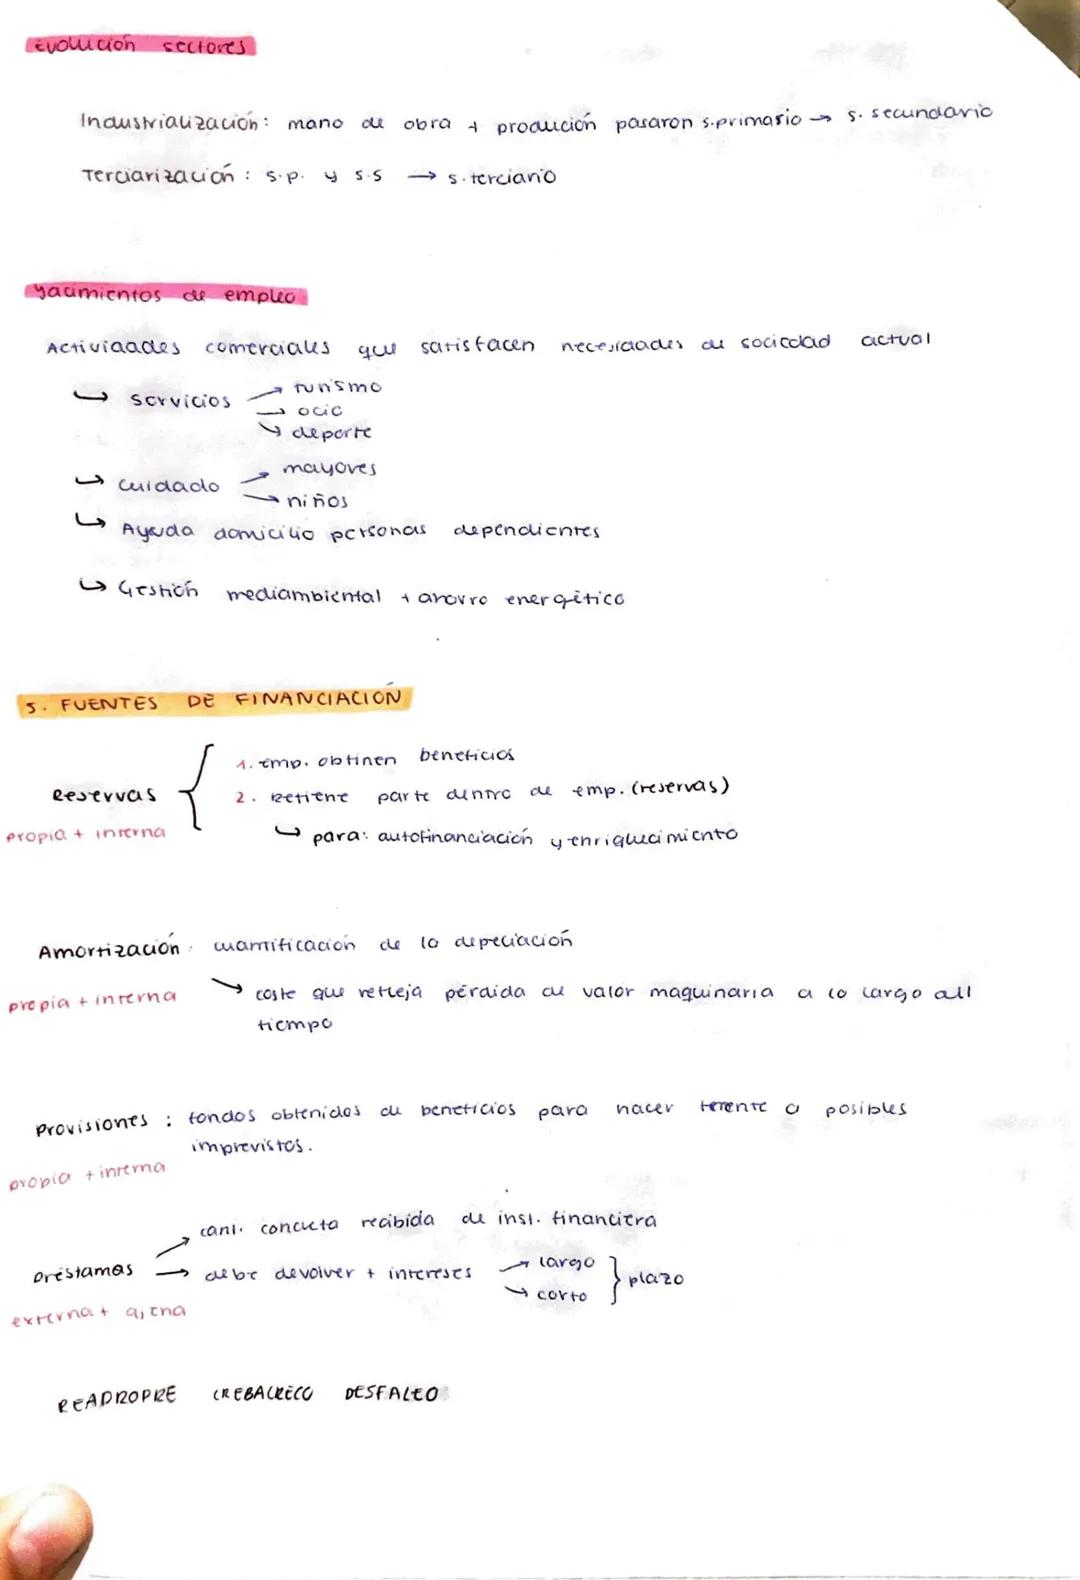 Evolución sectores
Industrialización: mano de obra + produción pasaron s.primario → s. secundario
Terciarización: s.p. y s.s → s. terciario
Yacimientos de empleo
Actividades comerciales que satisfacen necesidades de sociedad actual
↳ servicios → turismo
→ ocio
↘ deporte
↳ cuidado → mayores
→ niños
↳ Ayuda domicilio personas dependientes
↳ Gestión mediambiental + ahorro energético
5. FUENTES DE FINANCIACIÓN
1. emp. obtinen beneficios
Reservas { 2. Retiene parte dentro de emp. (reservas)
propia + interna
↳ para: autofinanciación y enriquecimiento
Amortización: cuantificación de la depreciación
propia + interna
↘ coste que refleja pérdida de valor maquinaria a lo largo del
tiempo
Provisiones: fondos obtenidos de beneficios para hacer ferente a posibles
imprevistos.
propia + interna
cant. concreta recibida de inst. financiera
préstamos → debe devolver + intereses → largo
↘ corto } plazo
externa + ajena
READROPRE CREBACRECO DESFALEO